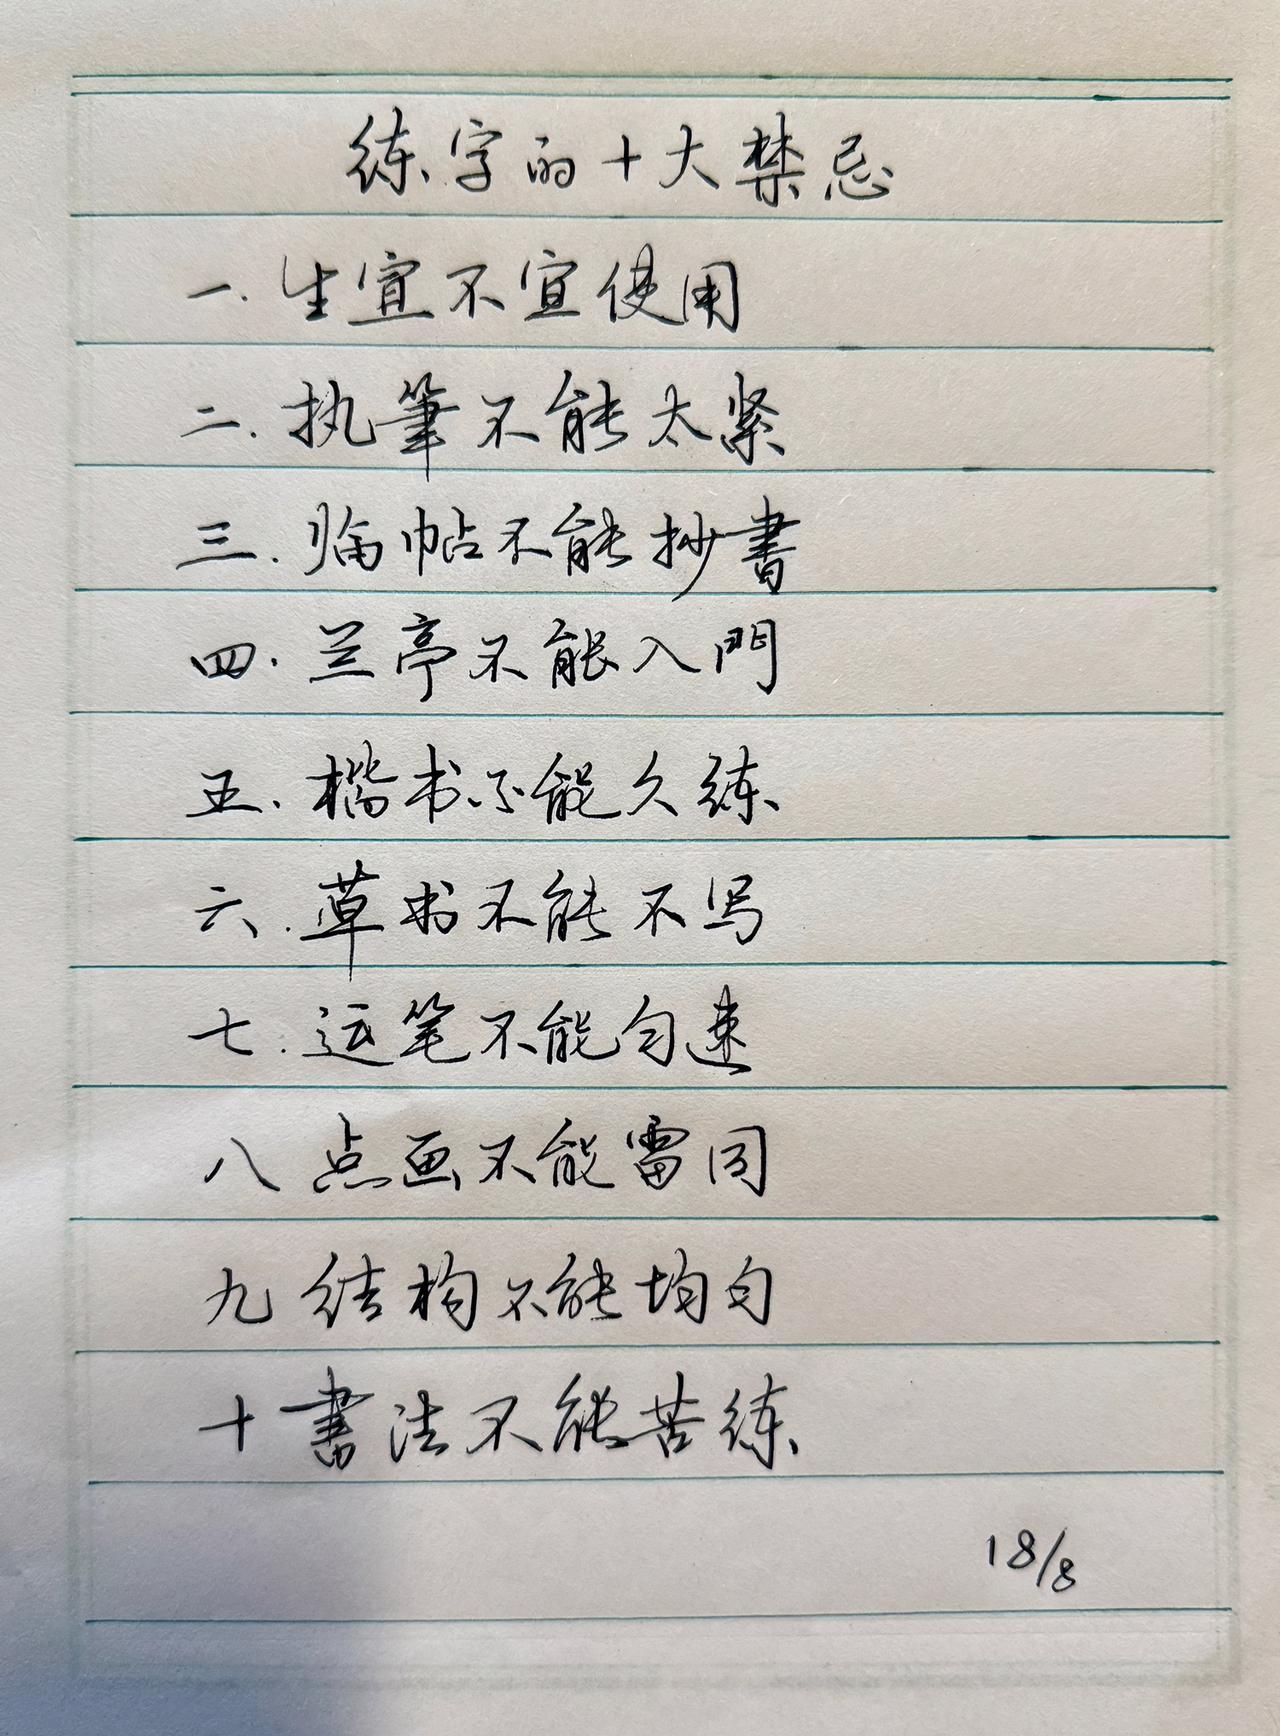 练字的十大禁忌
一.生宣不宣使用
二.执筆不能太紧
三.临帖不能抄書
四.兰亭不能入門
五.楷书不能久练
六.草书不能不写
七.运笔不能匀速
八 点画不能雷同
九 结构不能均匀
十 書法不能苦练
18/8